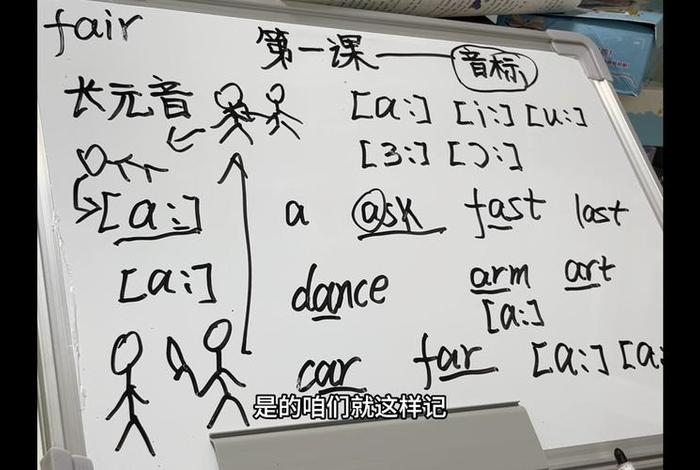 fair
第一课——音标
长元音 [a:] [i:] [u:]
[3:] [Ɔ:]
[a:] a ask fast last
[a:] dance arm art
[a:]
car far [a:] [a:
是的咱们就这样记